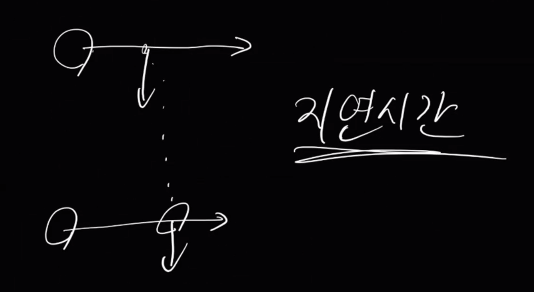 지연시간